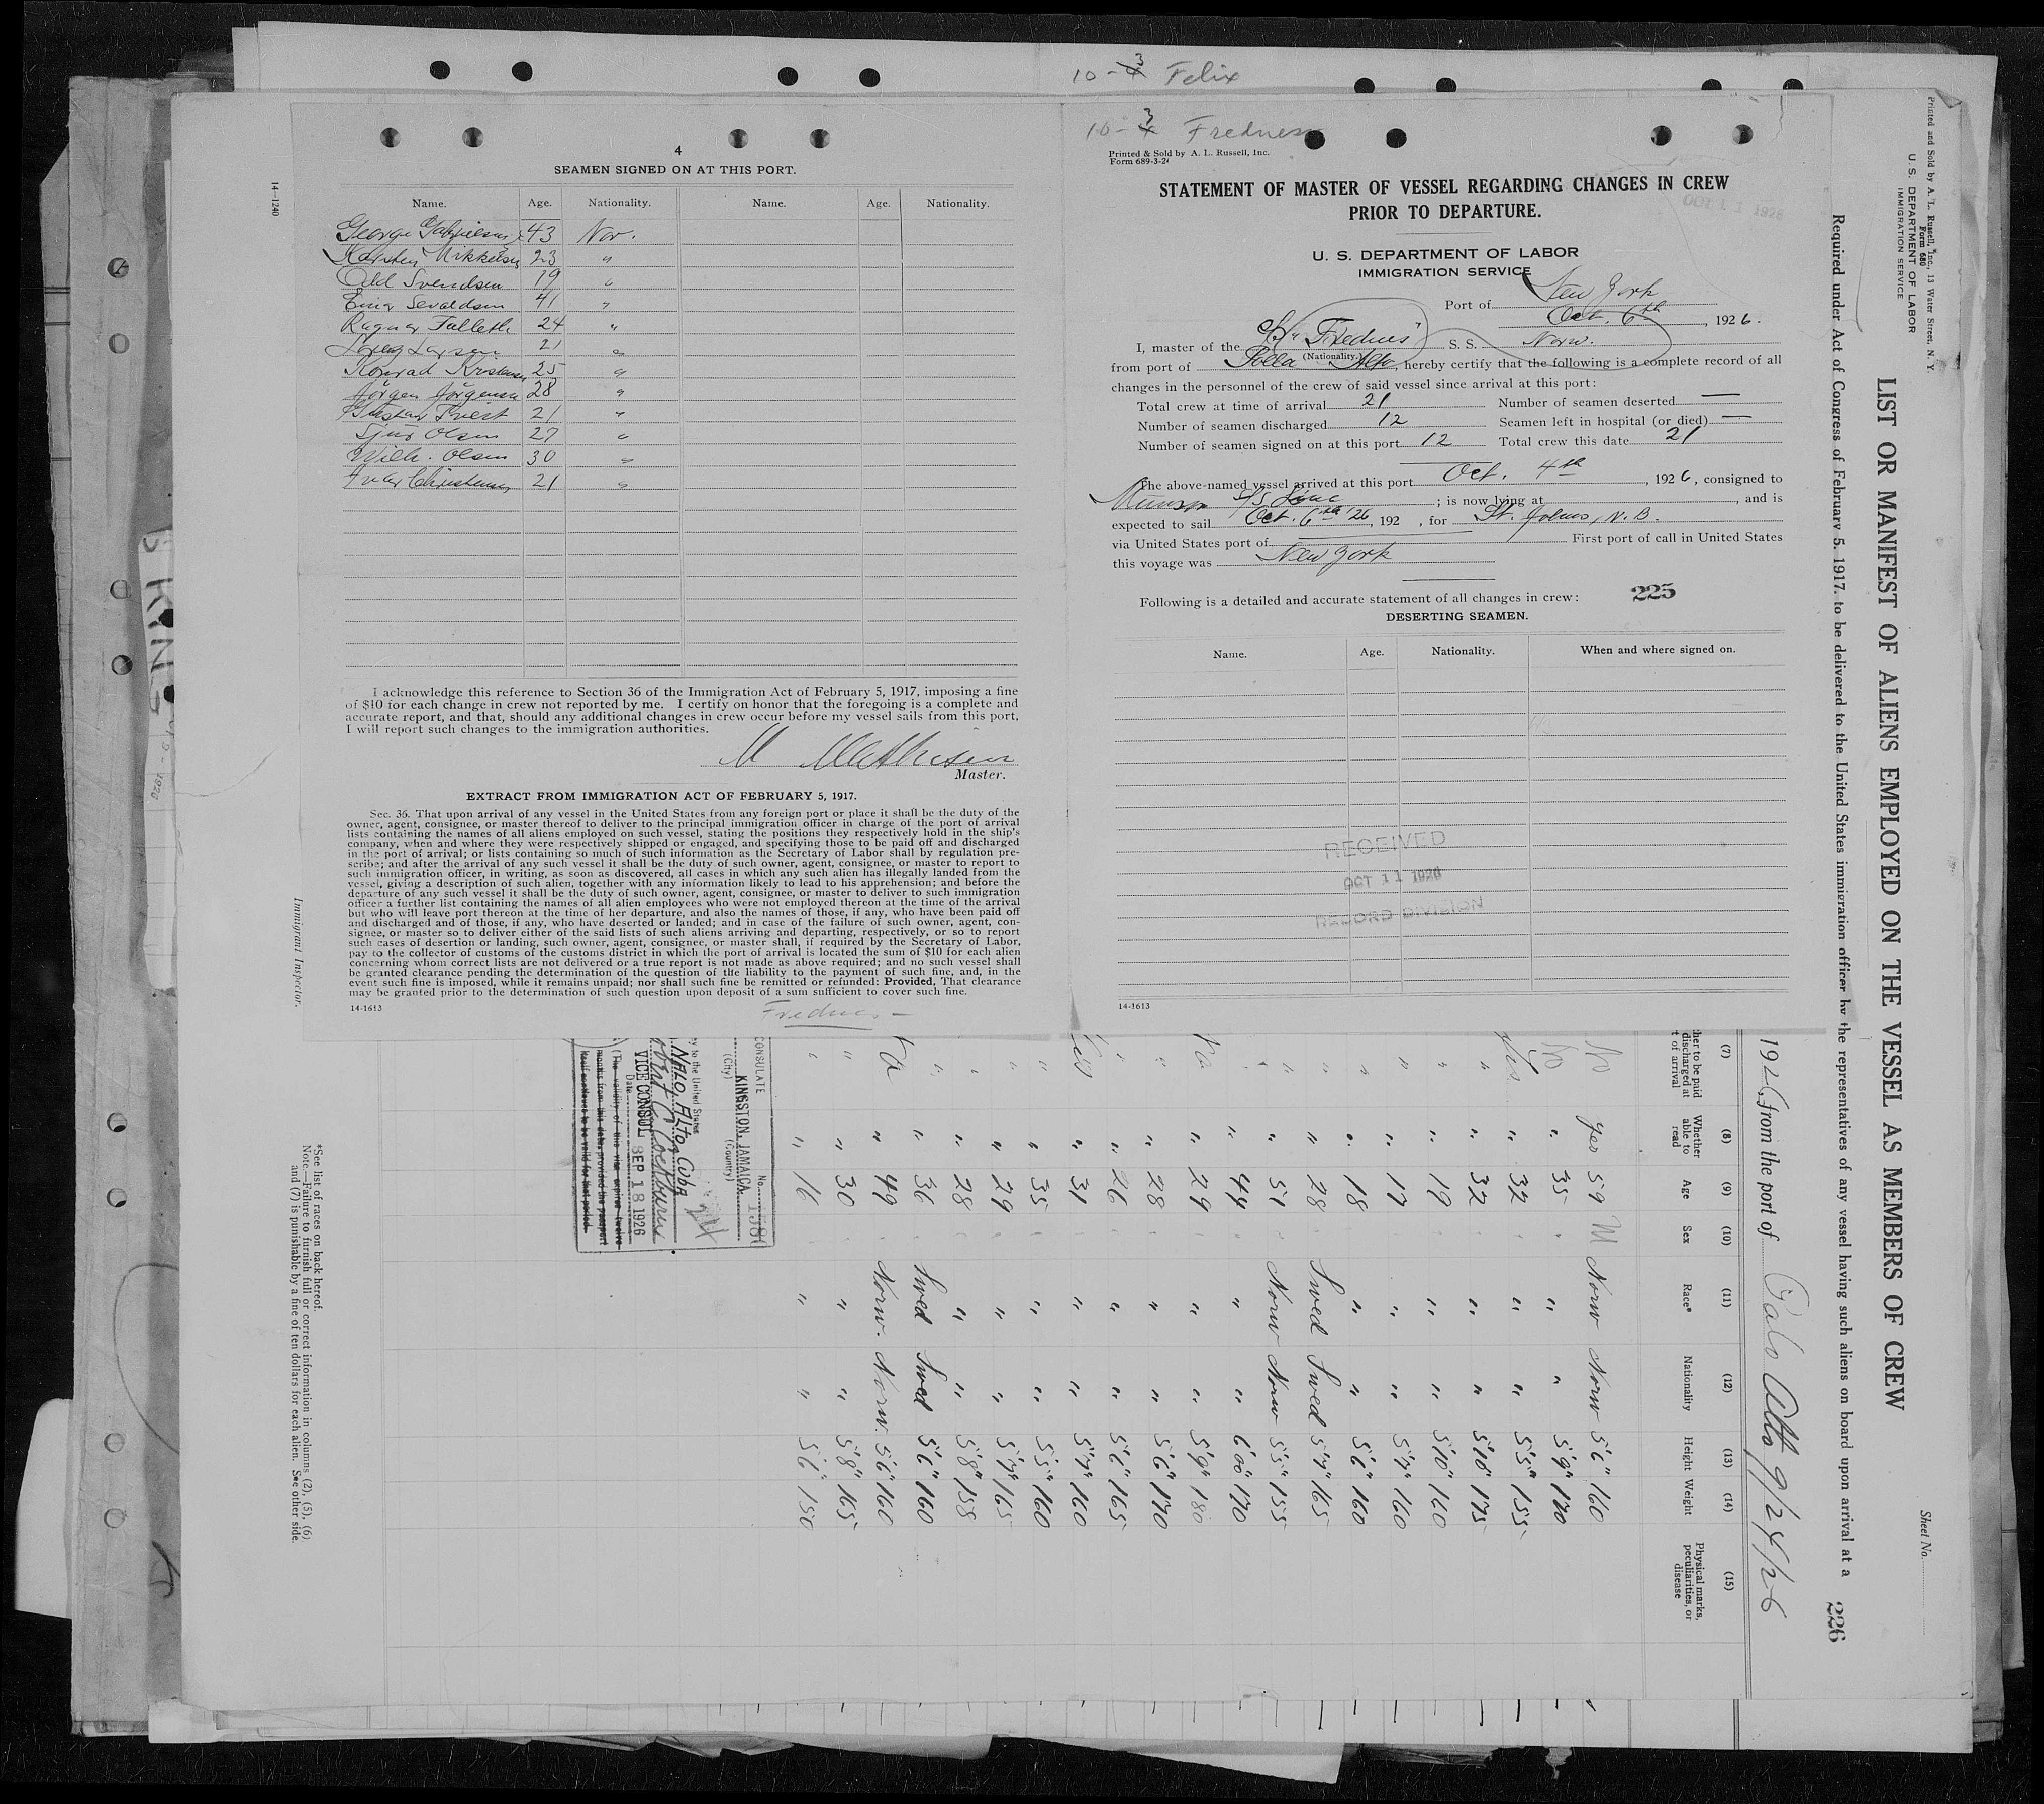 10-3 Felix
4
SEAMEN SIGNED ON AT THIS PORT.
Name. Age. Nationality. Name. Age. Nationality.
George Gabrielsen 43 Nor.
Karsten Mikkelsen 23 "
Odd Svendsen 19 "
Einar Sevaldsen 41 "
Ragnar Talleth 24 "
Larsen 21 "
Konrad Kristensen 25 "
Jörgen Jörgensen 28 "
Gustav 21 "
Sjur Olsen 27 "
Wilh. Olsen 30 "
Ivar Christensen 21 "
I acknowledge this reference to Section 36 of the Immigration Act of February 5, 1917, imposing a fine
of $10 for each change in crew not reported by me. I certify on honor that the foregoing is a complete and
accurate report, and that, should any additional changes in crew occur before my vessel sails from this port,
I will report such changes to the immigration authorities.
M Mathisen
Master.
EXTRACT FROM IMMIGRATION ACT OF FEBRUARY 5, 1917.
Sec. 36. That upon arrival of any vessel in the United States from any foreign port or place it shall be the duty of the
owner, agent, consignee, or master thereof to deliver to the principal immigration officer in charge of the port of arrival
lists containing the names of all aliens employed on such vessel, stating the positions they respectively hold in the ship's
company, when and where they were respectively shipped or engaged, and specifying those to be paid off and discharged
in the port of arrival; or lists containing so much of such information as the Secretary of Labor shall by regulation pre-
scribe; and after the arrival of any such vessel it shall be the duty of such owner, agent, consignee, or master to report to
such immigration officer, in writing, as soon as discovered, all cases in which any such alien has illegally landed from the
vessel, giving a description of such alien, together with any information likely to lead to his apprehension; and before the
departure of any such vessel it shall be the duty of such owner, agent, consignee, or master to deliver to such immigration
officer a further list containing the names of all alien employees who were not employed thereon at the time of the arrival
but who will leave port thereon at the time of her departure, and also the names of those, if any, who have been paid off
and discharged and of those, if any, who have deserted or landed; and in case of the failure of such owner, agent, con-
signee, or master so to deliver either of the said lists of such aliens arriving and departing, respectively, or so to report
such cases of desertion or landing, such owner, agent, consignee, or master shall, if required by the Secretary of Labor,
pay to the collector of customs of the customs district in which the port of arrival is located the sum of $10 for each alien
concerning whom correct lists are not delivered or a true report is not made as above required; and no such vessel shall
be granted clearance pending the determination of the question of the liability to the payment of such fine, and, in the
event such fine is imposed, while it remains unpaid; nor shall such fine be remitted or refunded: Provided, That clearance
may be granted prior to the determination of such question upon deposit of a sum sufficient to cover such fine.
14-1613
Frednes -
10-3 Frednes
Printed & Sold by A. L. Russell, Inc.
Form 689-3-24
STATEMENT OF MASTER OF VESSEL REGARDING CHANGES IN CREW
PRIOR TO DEPARTURE.
OCT 11 1926
U. S. DEPARTMENT OF LABOR
IMMIGRATION SERVICE
Port of New York
Oct. 6th, 1926.
I, master of the S/S "Frednes" S. S. Norw.
(Nationality.)
from port of Alto, hereby certify that the following is a complete record of all
changes in the personnel of the crew of said vessel since arrival at this port:
Total crew at time of arrival 21 Number of seamen deserted —
Number of seamen discharged 12 Seamen left in hospital (or died) —
Number of seamen signed on at this port 12 Total crew this date 21
The above-named vessel arrived at this port Oct. 4th, 1926, consigned to
Munson S/S Line ; is now lying at , and is
expected to sail Oct. 6th '26, 192 , for St. Johns, N.B.
via United States port of First port of call in United States
this voyage was New York
Following is a detailed and accurate statement of all changes in crew: 225
DESERTING SEAMEN.
Name. Age. Nationality. When and where signed on.
RECEIVED
OCT 11 1926
RECORD DIVISION
14-1613
Printed and Sold by A. L. Russell, Inc., 13 Water Street, N. Y.
Form 680
U. S. DEPARTMENT OF LABOR
IMMIGRATION SERVICE
Sheet No.
LIST OR MANIFEST OF ALIENS EMPLOYED ON THE VESSEL AS MEMBERS OF CREW
Required under Act of Congress of February 5, 1917, to be delivered to the United States immigration officer by the representatives of any vessel having such aliens on board upon arrival at a
226
1926, from the port of Palo Alto 9/24/26
(7) (8) (9) (10) (11) (12) (13) (14) (15)
her to be paid discharged at t of arrival
Whether able to read
Age
Sex
Race*
Nationality
Height
Weight
Physical marks, peculiarities, or disease
No yes 59 M Norw Norw 5'6" 160
No " 35 " " " 5'9" 170
Yes " 32 " " 5'5" 155
" " 32 " " 5'10" 175
" " 19 " " 5'10" 160
" " 17 " " 5'7" 160
" " 18 " " 5'6" 160
" " 28 Swed Swed 5'7" 165
" " 51 Norw Norw 5'5" 155
" " 44 " " 6'00" 170
" 29 " " 5'9" 180
" " 28 " " 5'6" 170
" " 26 " " 5'6" 165
" 31 " " 5'7" 160
" " 35 " " 5'5" 160
" " 29 " " 5'7" 165
" " 28 " " 5'8" 158
" " 36 Swed Swed 5'6" 160
" 49 Norw. Norw. 5'6" 160
" " 30 " " 5'8" 165
" " 16 " " 5'6" 150
CONSULATE No. 158
KINGSTON, JAMAICA.
(City) (Country)
y to the United States
ALTO, Cuba
VICE CONSUL
Date SEP 18 1926
(The validity of this visa expires twelve
months from this date, provided the passport
itself continues to be valid for that period.
14-1240
Immigrant Inspector.
*See list of races on back hereof.
Note.—Failure to furnish full or correct information in columns (2), (5), (6)
and (7) is punishable by a fine of ten dollars for each alien. See other side.
KINGS